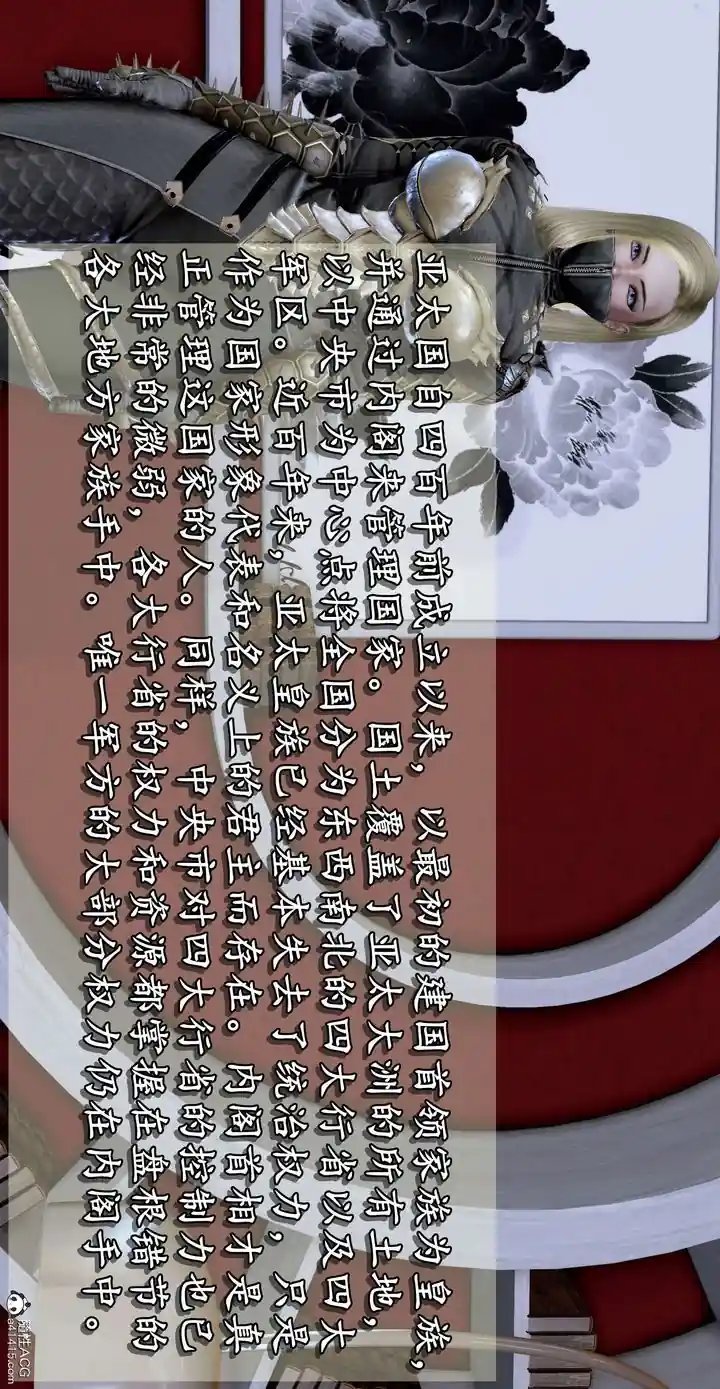 亚太国自四百年前成立以来，以最初的建国首领家族为皇族，
并通过内阁来管理国家。国土覆盖了亚太大洲的所有土地，
以中央市为中心点将全国分为东西南北的四大行省以及四大
军区。近百年来，亚太皇族已经基本失去了统治权力，只是
作为国家形象代表和名义上的君王而存在。内阁首相才是真
正管理这国家的人。同样，中央市对四大行省的控制力也已
经非常的微弱，各大行省的权力和资源都掌握在盘根错节的
各大地方家族手中。唯一军方的大部分权力仍在内阁手中。
随性ACG
a41415.com